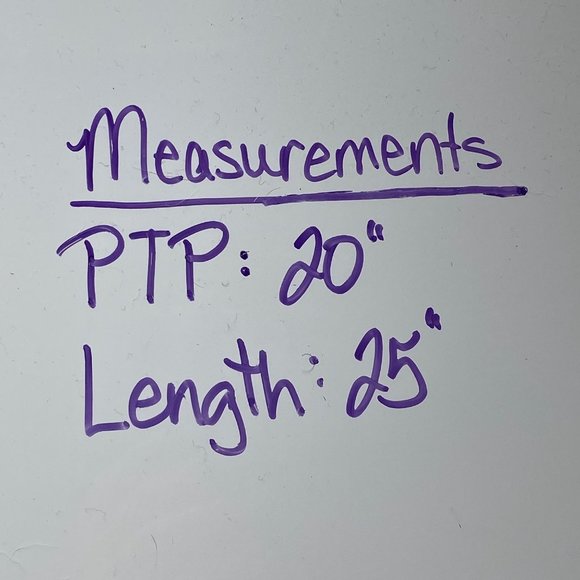 Measurements
PTP: 20"
Length: 25"